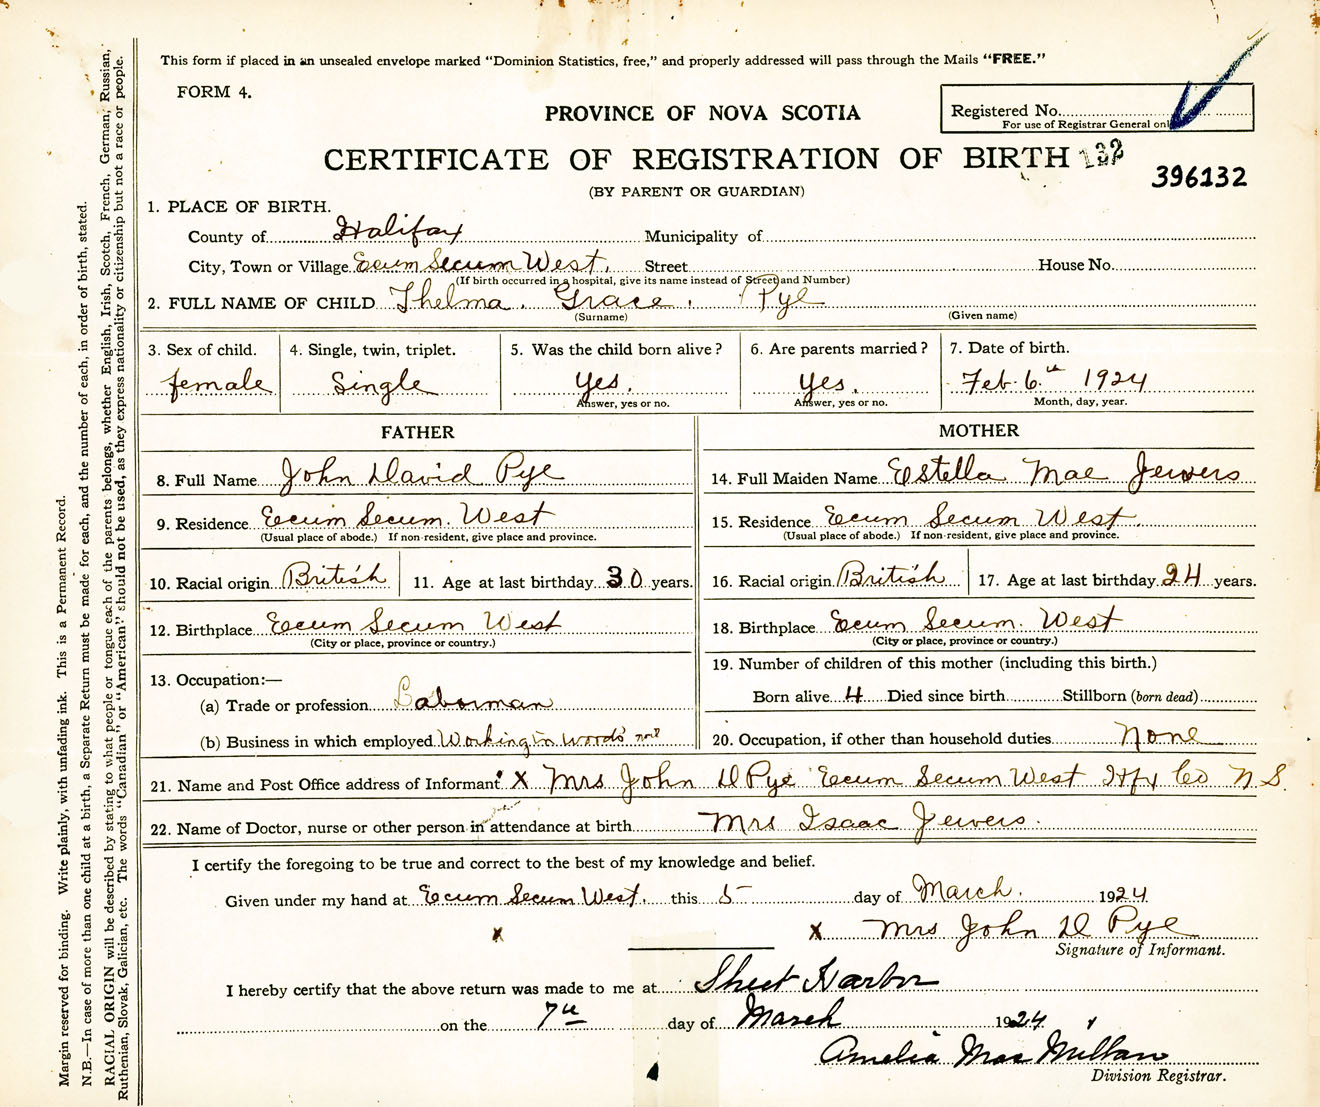 This form if placed in an unsealed envelope marked "Dominion Statistics, free," and properly addressed will pass through the Mails "FREE."
FORM 4.
PROVINCE OF NOVA SCOTIA
Registered No.
For use of Registrar General only
CERTIFICATE OF REGISTRATION OF BIRTH
396132
(BY PARENT OR GUARDIAN)
1. PLACE OF BIRTH.
County of Halifax Municipality of
City, Town or Village Ecum Secum West. Street House No.
(If birth occurred in a hospital, give its name instead of Street and Number)
2. FULL NAME OF CHILD Thelma. Grace. Pye
(Surname) (Given name)
3. Sex of child. 4. Single, twin, triplet. 5. Was the child born alive? 6. Are parents married? 7. Date of birth.
female Single Yes. Yes. Feb. 6.th 1924
Answer, yes or no. Answer, yes or no. Month, day, year.
FATHER MOTHER
8. Full Name John David Pye 14. Full Maiden Name Estella Mae Jewers
9. Residence Ecum Secum. West 15. Residence Ecum Secum West.
(Usual place of abode.) If non-resident, give place and province. (Usual place of abode.) If non-resident, give place and province.
10. Racial origin British 11. Age at last birthday 30 years. 16. Racial origin British 17. Age at last birthday 24 years.
12. Birthplace Ecum Secum West 18. Birthplace Ecum Secum. West
(City or place, province or country.) (City or place, province or country.)
13. Occupation:— 19. Number of children of this mother (including this birth.)
(a) Trade or profession Laborman Born alive 4 Died since birth Stillborn (born dead)
(b) Business in which employed Working in woods 20. Occupation, if other than household duties None
21. Name and Post Office address of Informant X Mrs John D Pye Ecum Secum West Hfx Co N.S.
22. Name of Doctor, nurse or other person in attendance at birth Mrs Isaac Jewers.
I certify the foregoing to be true and correct to the best of my knowledge and belief.
Given under my hand at Ecum Secum West. this 5 day of March. 1924
x x Mrs John D Pye
Signature of Informant.
I hereby certify that the above return was made to me at Sheet Harbor
on the 7th day of March 1924
Amelia MacMillan
Division Registrar.
Margin reserved for binding. Write plainly, with unfading ink. This is a Permanent Record.
N.B.—In case of more than one child at a birth, a Separate Return must be made for each, and the number of each, in order of birth, stated.
RACIAL ORIGIN will be described by stating to what people or tongue each of the parents belongs, whether English, Irish, Scotch, French, German, Russian,
Ruthenian, Slovak, Galician, etc. The words "Canadian" or "American" should not be used, as they express nationality or citizenship but not a race or people.